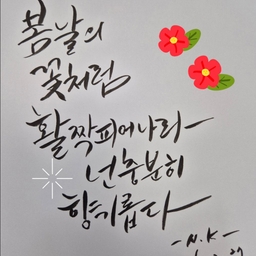 봄날의
꽃처럼
활짝피어나라
넌충분히
향긔롭다
-N.K-